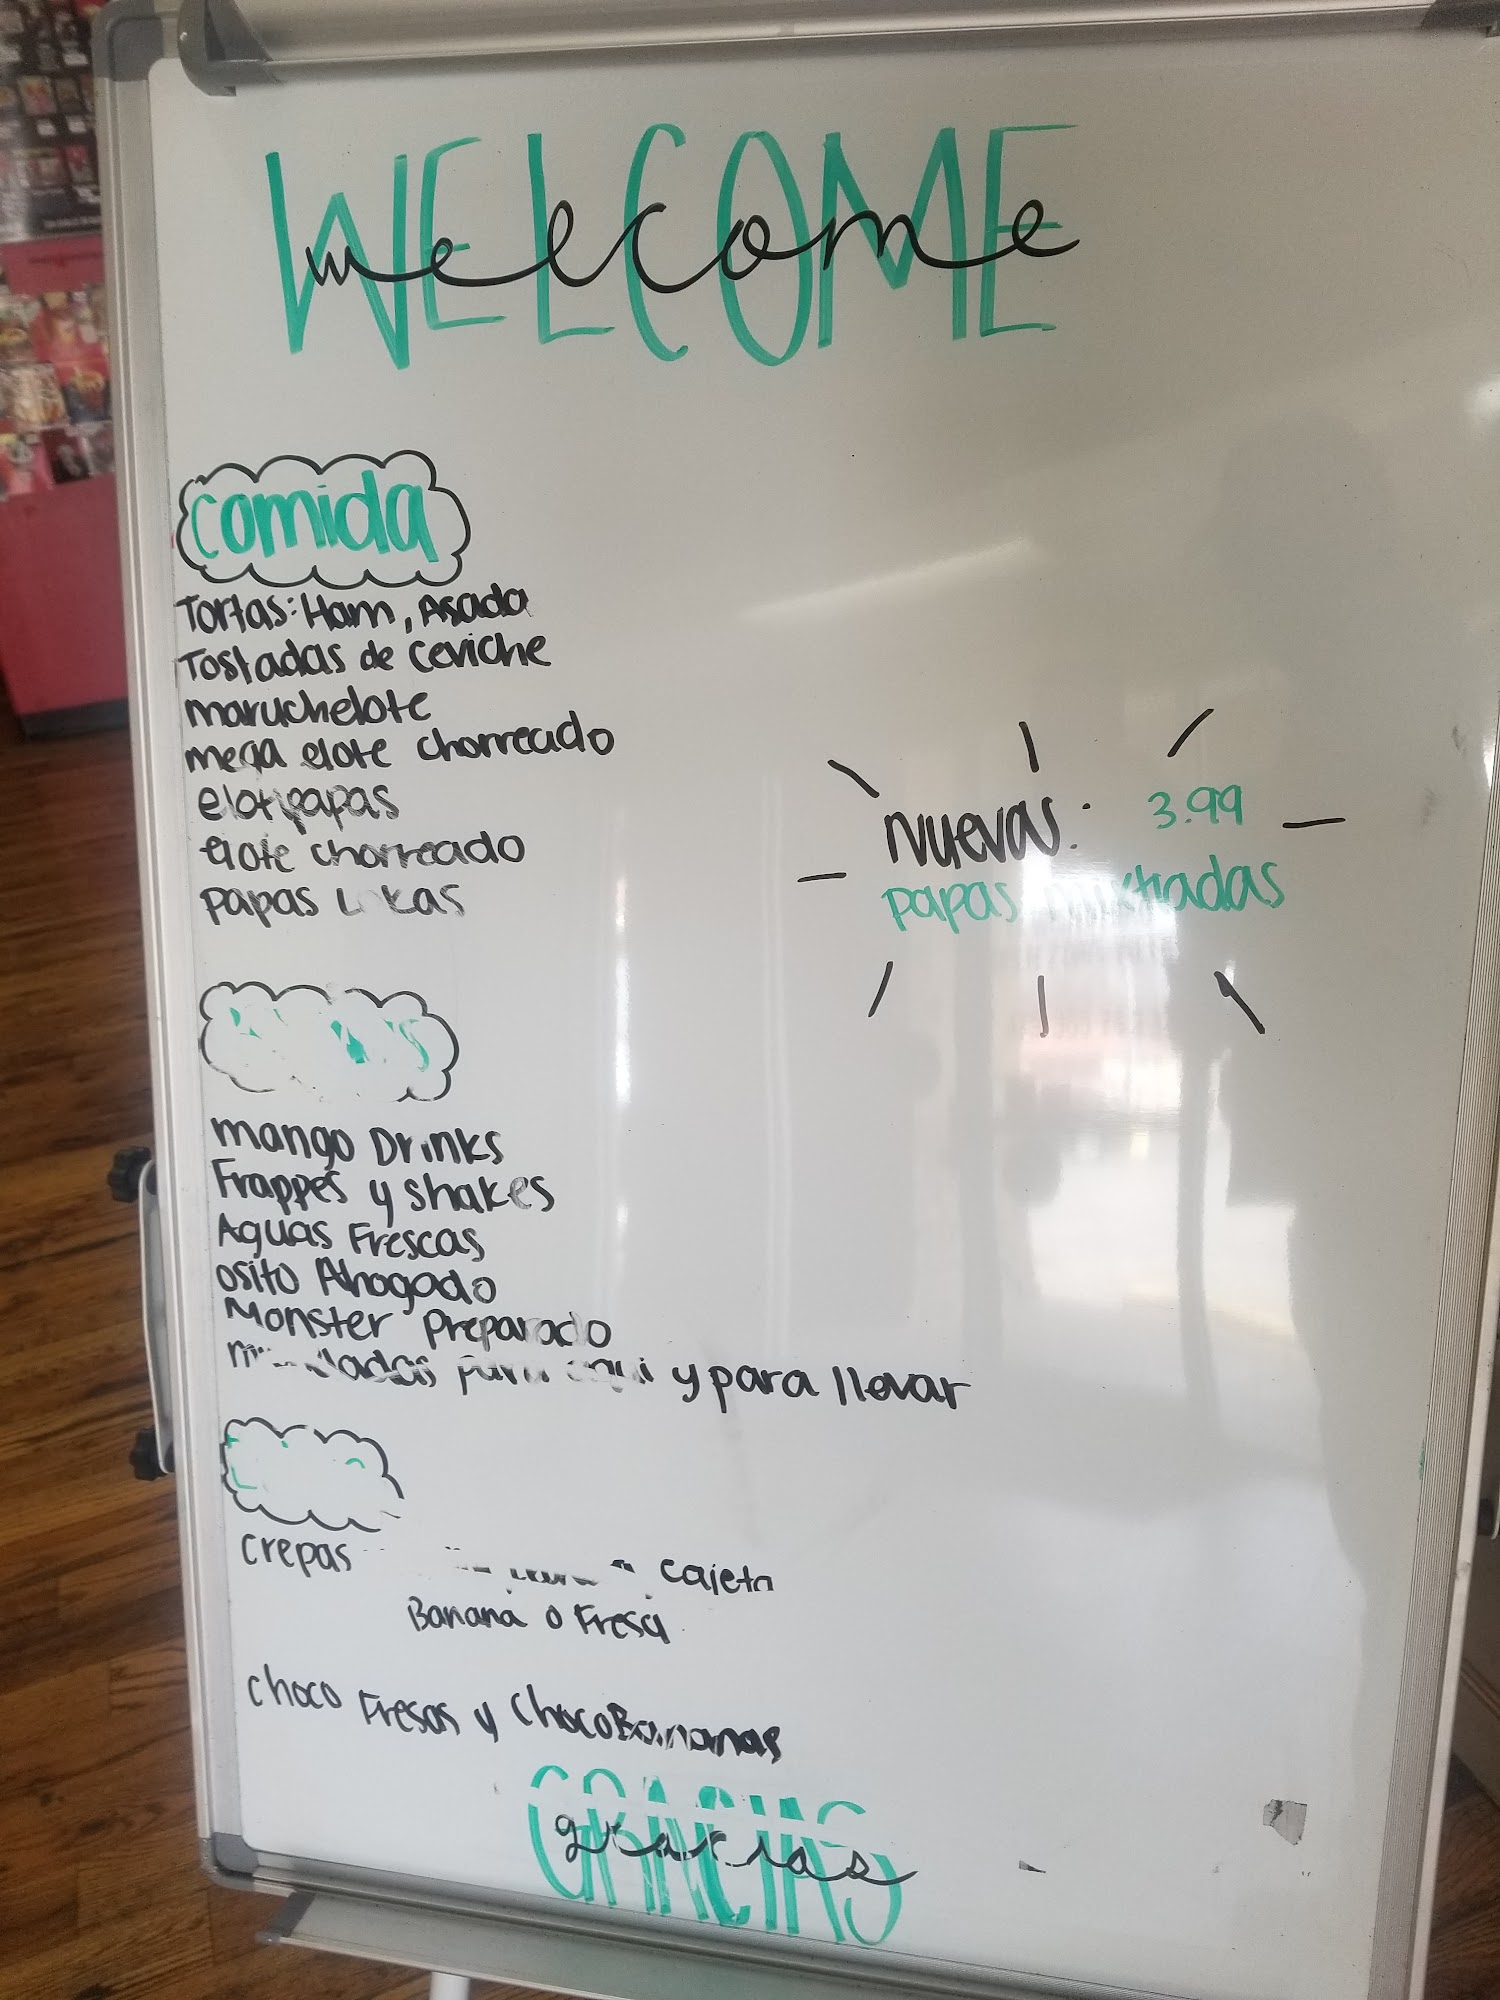 WELCOME
welcome
comida
Tortas: Ham, Asada
Tostadas de ceviche
maruchelote
mega elote chorreado
elotipapas
elote chorreado
papas Lokas
Nuevas: 3.99
papas mixtiadas
mango Drinks
Frappes y shakes
Aguas Frescas
osito Ahogado
Monster preparado
para aqui y para llevar
crepas cajeta
Banana o Fresa
choco Fresas y ChocoBananas
GRACIAS
gracias